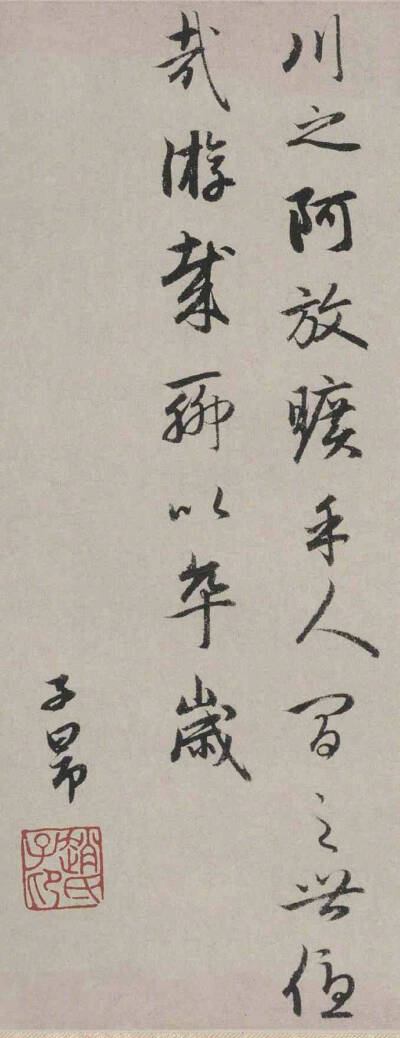 川之阿放曠乎人間之世優
哉游哉聊以卒歲
子昂
趙氏子印